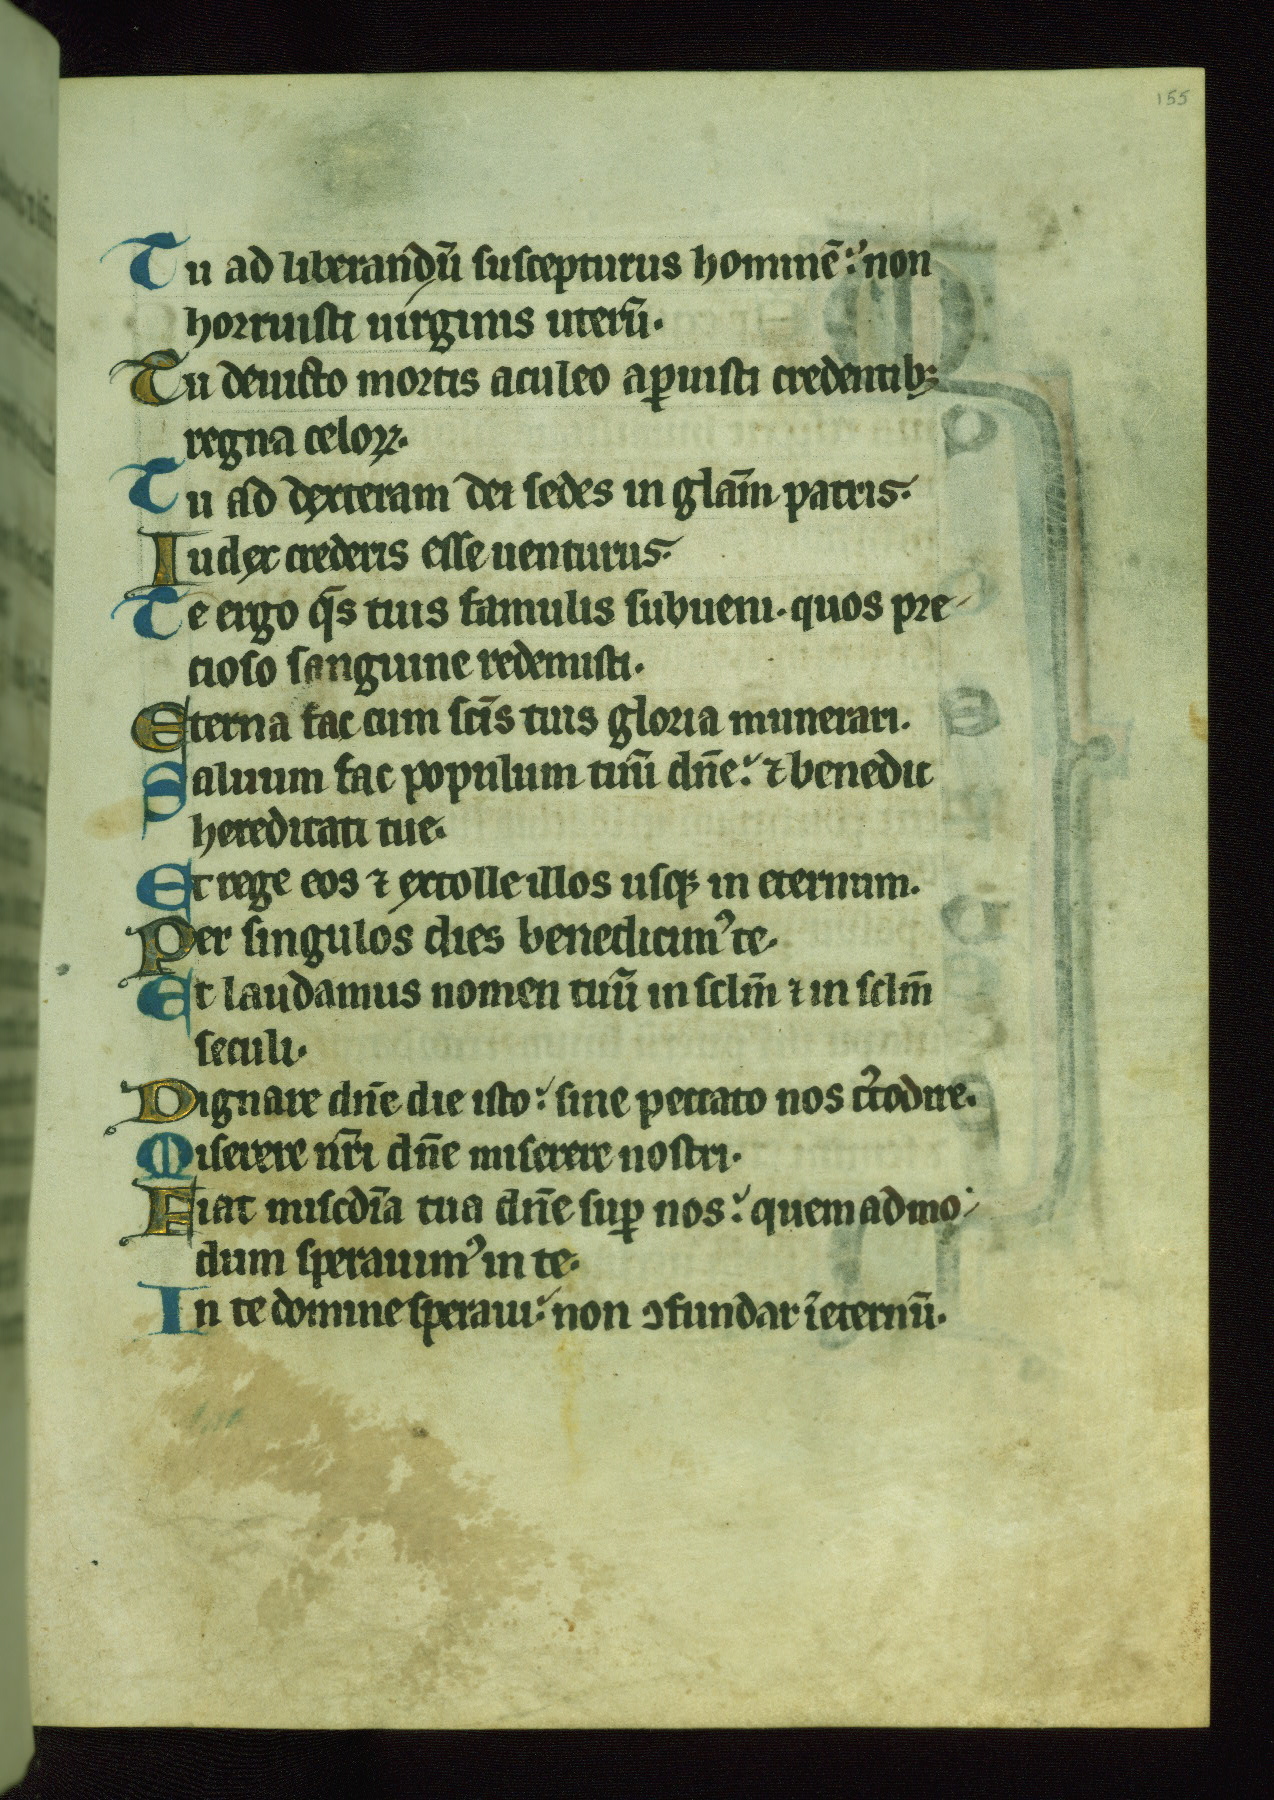 155
Tu ad liberandū suscepturus hominē: non
horruisti uirginis uterū.
Tu deuicto mortis aculeo aꝑuisti credentibꝫ
regna celoꝝ.
Tu ad dexteram dei sedes in glām patris.
Iudex crederis esse uenturus.
Te ergo q̄s tuis famulis subueni. quos pre
cioso sanguine redemisti.
Eterna fac cum sc̄is tuis gloria munerari.
Saluum fac populum tuū dn̄e: ⁊ benedic
hereditati tue.
Et rege eos ⁊ extolle illos usqꝫ in eternum.
Per singulos dies benedicimꝰ te.
Et laudamus nomen tuū in sclm̄ ⁊ in sclm̄
seculi.
Dignare dn̄e die isto: sine peccato nos cꝰtodire.
Miserere nr̄i dn̄e miserere nostri.
Fiat misc̄dia tua dn̄e suꝑ nos: quemadmo
dum sperauimꝰ in te.
In te domine speraui: non ↄfundar īeternū.